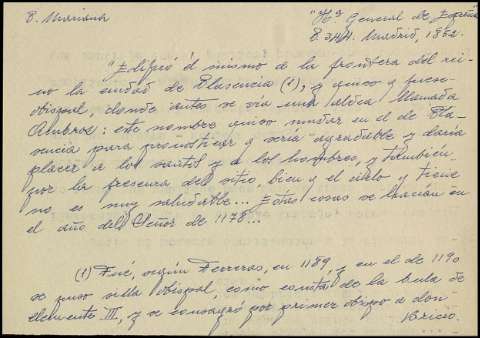 P. Mariana
"Hª General de España
P. 344. Madrid, 1852.
"Edificó él mismo a la frontera del rei-
no la ciudad de Plasencia (1), y quiso q fuese
obispal, donde antes se vía una aldea llamada
Ambroz: este nombre quiso mudar en el de Pla-
sencia para pronosticar q sería agradable y daría
placer a los santos y a los hombres, y también
por la frescura del sitio, bien q el cielo q tiene
no es muy saludable... Estas cosas se hacían en
el año del Señor de 1178...
(1) Fué, según Ferreras, en 1189, y en el de 1190
se puso silla obispal, como consta de la bula de
Clemente III, y se consagró por primer obispo a don
Bricio.